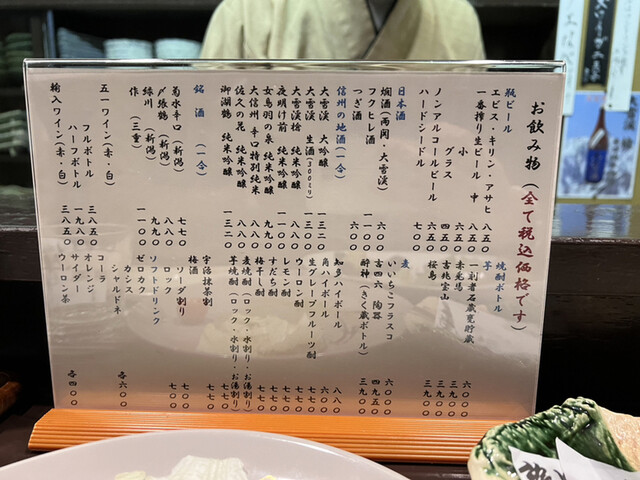 お飲み物(全て税込価格です)
瓶ビール
エビス・キリン・アサヒ 八五〇
一番搾り生ビール 中 八五〇
小 六五〇
グラス 四五〇
ノンアルコールビール 六五〇
ハードシードル 七〇〇
日本酒
燗酒(両関・大雪渓) 六〇〇
フクヒレ酒 一一〇〇
つぎ酒 六〇〇
信州の地酒(一合)
大雪渓 大吟醸 一三二〇
大雪渓 生酒(300ミリ) 一三〇〇
大雪渓槍 純米吟醸 一一〇〇
夜明け前 純米吟醸 一一〇〇
女鳥羽の泉 純米吟醸 九九〇
大信州 辛口特別純米 八八〇
佐久の花 純米吟醸 八八〇
御湖鶴 純米吟醸 一三二〇
銘酒(一合)
菊水辛口(新潟) 七七〇
〆張鶴(新潟) 八八〇
緑川(新潟) 九九〇
作(三重) 一一〇〇
五一ワイン(赤・白)
フルボトル 三八五〇
ハーフボトル 一九八〇
輸入ワイン(赤・白) 三八五〇
焼酎ボトル
芋
一刻者石蔵甕貯蔵 六〇〇〇
赤兎馬 三九〇〇
吉兆宝山 三九〇〇
桜島 三九〇〇
麦
いいちこフラスコ 六〇〇〇
吉四六 陶器 四九五〇
酔神(きく蔵ボトル) 三九〇〇
知多ハイボール 八八〇
角ハイボール 六〇〇
生グレープフルーツ酎 八八〇
ウーロン酎 七七〇
レモン酎 七七〇
すだち酎 七七〇
梅干し酎 七七〇
麦焼酎(ロック・水割り・お湯割り) 七七〇
芋焼酎(ロック・水割り・お湯割り) 七七〇
宇治抹茶割 七七〇
梅酒
ソーダ割り 七七〇
ロック 七七〇
ソフトドリンク
ゼロカク
カシス
シャルドネ 各六〇〇
コーラ
オレンジ
サイダー
ウーロン茶 各四〇〇